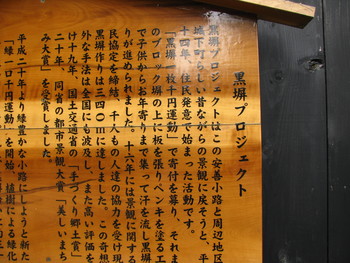 黒塀プロジェクト
黒塀プロジェクトはこの安善小路と周辺地区を
城下町らしい昔ながらの景観に戻そうと、平成
十四年、住民発意で始まった活動です。
「黒塀一枚千円運動」で寄付を募り、それまで
のブロック塀の上に板を張りペンキを塗る工
で子供からお年寄りまで集って汗を流し黒塀
りが進められました。十六年には景観に関する
民協定を締結、千人もの人達の協力を受け現
黒塀作りは三四〇mに達しました。この奇想
外な手法は全国にも波及し、また高い評価を
け十九年、国土交通省の「手づくり郷土賞」
二十年、同省の都市景観大賞「美しいまち
み大賞」を受賞しました。
平成二十年より緑豊かな小路にしようと新た
「緑一口千円運動」を開始、植樹による緑化